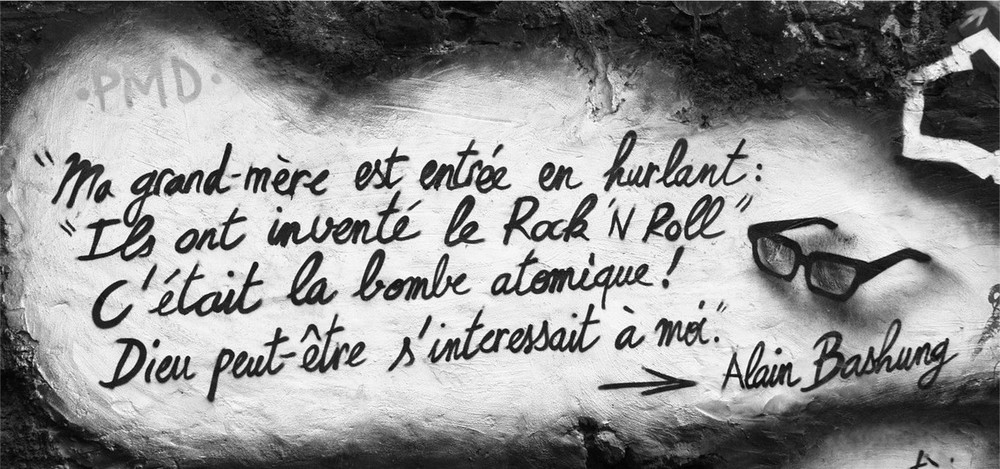 ·PMD·
"Ma grand-mère est entrée en hurlant :
"Ils ont inventé le Rock 'N Roll"
C'était la bombe atomique !
Dieu peut-être s'interessait à moi."
→ Alain Bashung